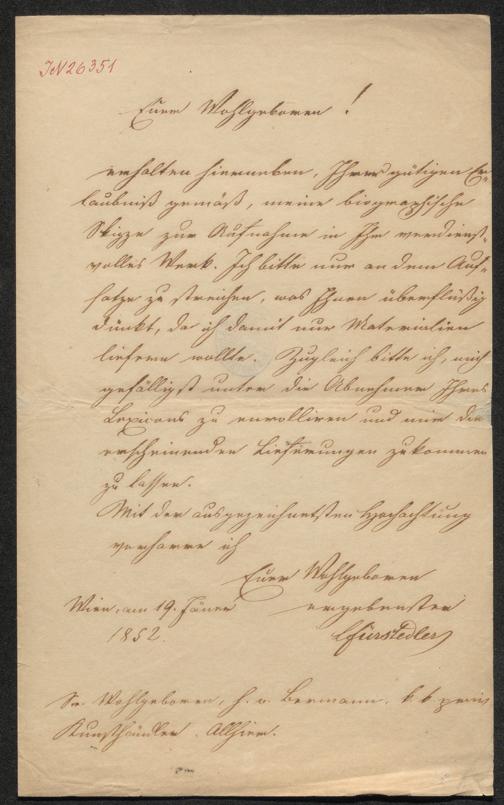 IN 26351
Euer Wohlgeboren!
erhalten hierneben, Ihrer gütigen Er-
laubniß gemäß, meine biographische
Skizze zur Aufnahme in Ihr verdienst-
volles Werk. Ich bitte nur an dem Auf-
satze zu streichen, was Ihnen überflüßig
dünkt, da ich damit nur Materialien
liefern wollte. Zugleich bitte ich, mich
gefälligst unter die Abnehmer Ihres
Lexicons zu enrolliren und mir die
erscheinenden Lieferungen zukommen
zu lassen.
Mit der ausgezeichnetsten Hochachtung
verharre ich
Euer Wohlgeboren
Wien, am 19. Jäner ergebenster
1852. Cfürstedler
Sr Wohlgeboren, H. v. Bermann, k. k. priv.
Kunsthändler. Allhier.